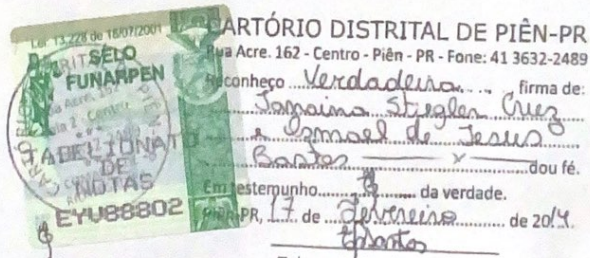 Lei 13.228 de 18/07/2001
SELO
FUNARPEN
TABELIONATO
DE
NOTAS
EYV88802
CARTÓRIO DISTRITAL DE PIÊN-PR
Rua Acre. 162 - Centro - Piên - PR - Fone: 41 3632-2489
Reconheço Verdadeira firma de:
Janaina Stiegler Cruz
e Ismael de Jesus
Bastos x dou fé.
Em testemunho da verdade.
Piên-PR, 17 de fevereiro de 2014.